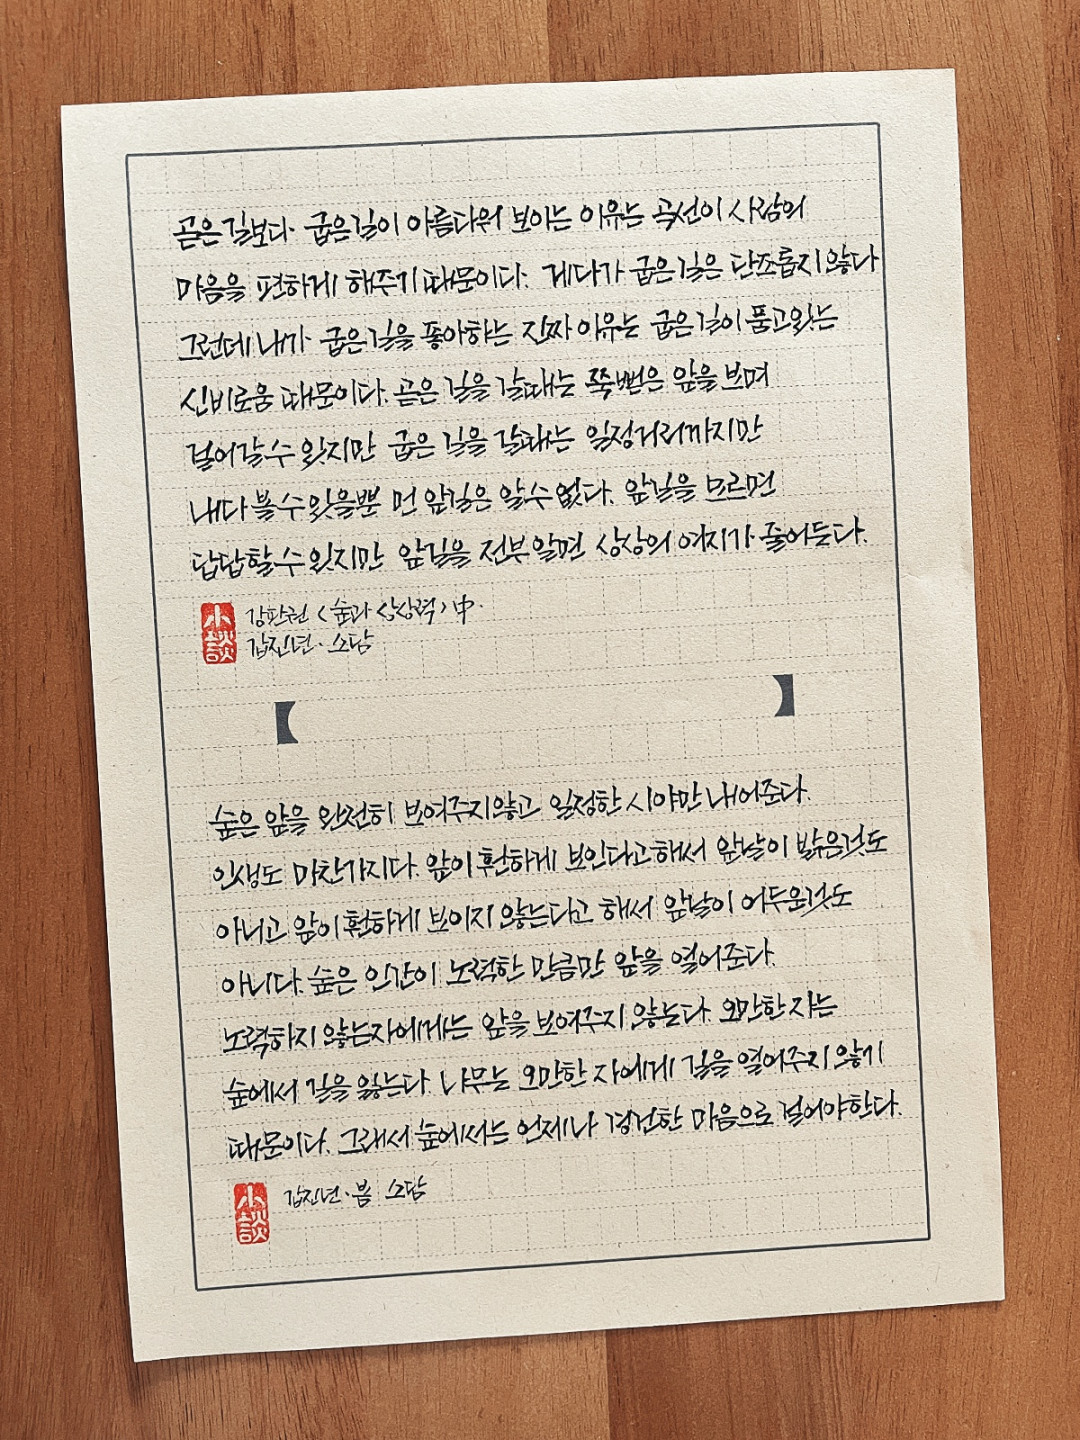 곧은 길보다. 굽은 길이 아름다워 보이는 이유는 곡선이 사람의
마음을 편하게 해주기 때문이다. 게다가 굽은 길은 단조롭지 않다
그런데 내가 굽은 길을 좋아하는 진짜 이유는 굽은 길이 품고 있는
신비로움 때문이다. 곧은 길을 갈 때는 쭉 뻗은 앞을 보며
걸어갈 수 있지만 굽은 길을 갈 때는 일정거리까지만
내다 볼 수 있을 뿐 먼 앞길은 알 수 없다. 앞길을 모르면
답답할 수 있지만 앞길을 전부 알면 상상의 여지가 줄어든다.
小談
강판권 〈숲과 상상력〉 中.
갑진년. 소담
숲은 앞을 완전히 보여주지 않고 일정한 시야만 내어준다.
인생도 마찬가지다. 앞이 훤하게 보인다고 해서 앞날이 밝은 것도
아니고 앞이 훤하게 보이지 않는다고 해서 앞날이 어두운 것도
아니다. 숲은 인간이 노력한 만큼만 앞을 열어준다.
노력하지 않는 자에게는 앞을 보여주지 않는다. 오만한 자는
숲에서 길을 잃는다. 나무는 오만한 자에게 길을 열어주지 않기
때문이다. 그래서 숲에서는 언제나 경건한 마음으로 걸어야 한다.
小談
갑진년. 봄 소담